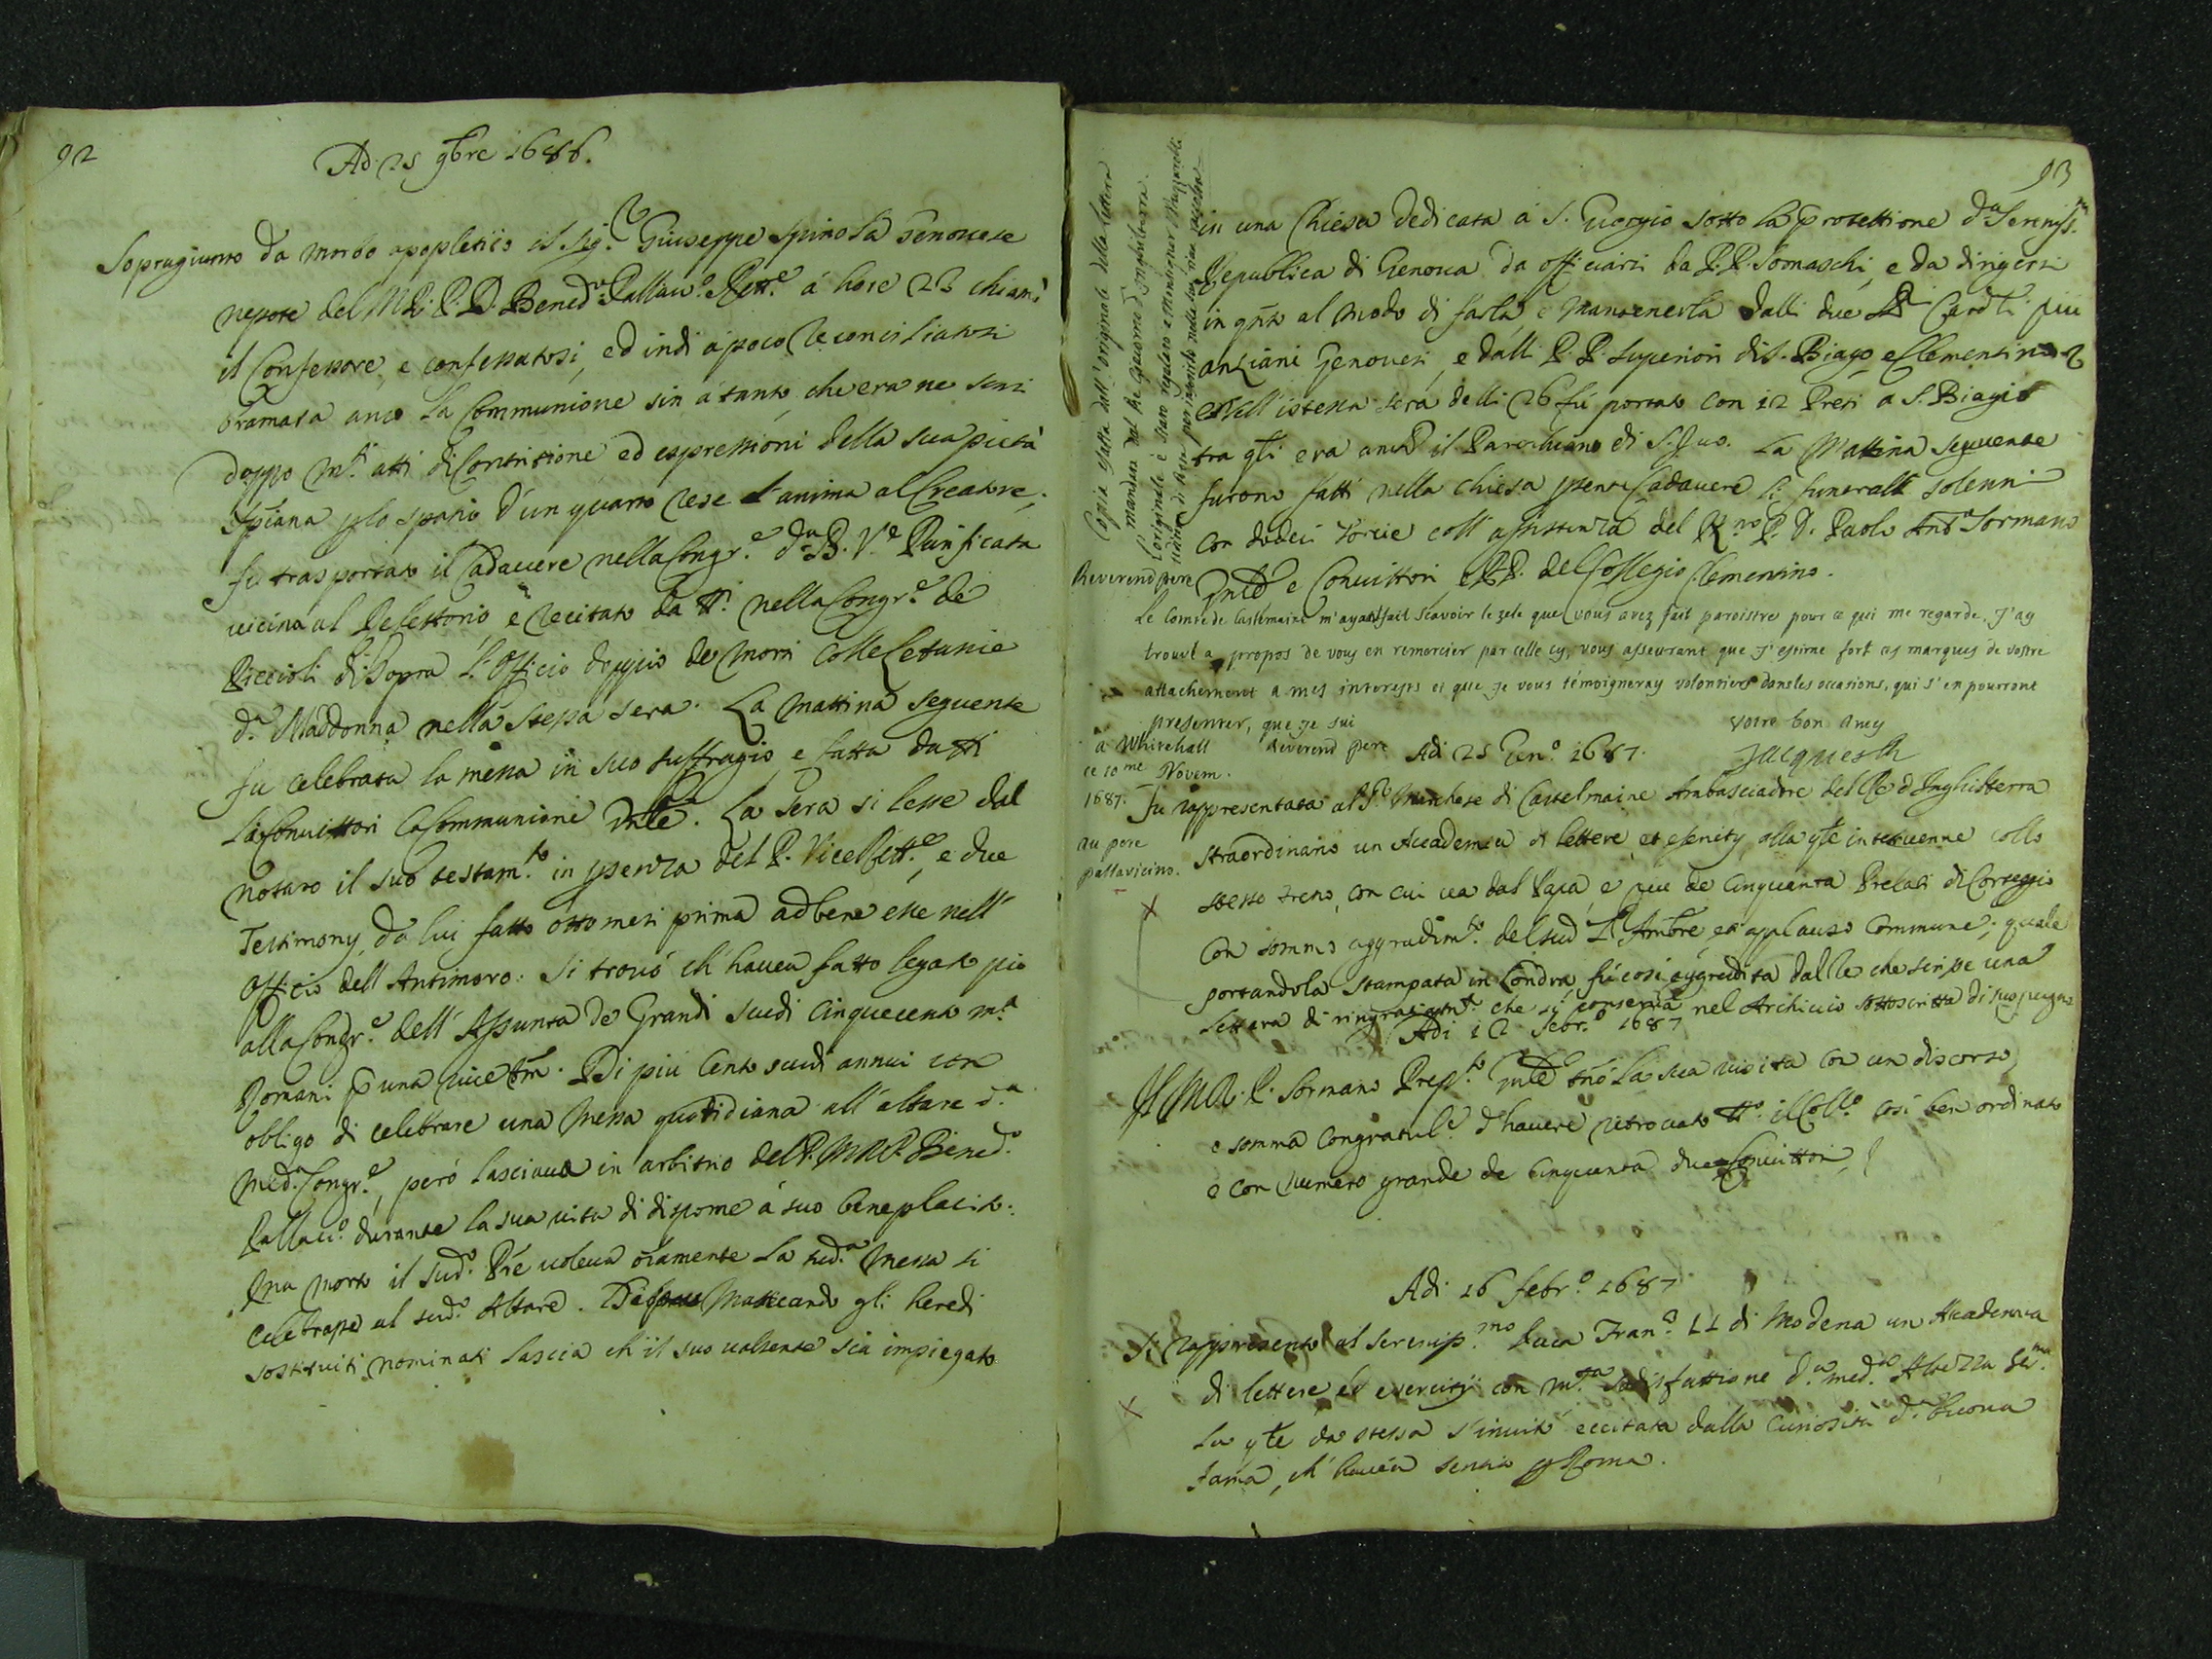 92
Adi 25 9bre 1686.
Sopragiunto da morbo apopletico il Sig.r Giuseppe Spinola Genovese
nepote del M.R.P.D. Bened.o Pallavic.o Rett.e á hore 23 chiamò
il Confessore, e confessatosi, ed indi á poco reconciliatosi
bramava anco la Communione sin á tanto, che era ne sensi
doppo m.ti atti di Contritione ed espressioni della sua pietà
xpiana p lo spatio d'un quarto rese l'anima al Creatore.
fu trasportato il Cadavere nella Congr.e d.a B. V.e Purificata
vicina al Refettorio e recitato da tt.i nella Congr.e de
Piccioli di sopra l'Officio doppio de Morti colle Letanie
d.a Madonna nella stessa sera. La mattina seguente
fu celebrata la messa in suo suffragio, e fatta da tti
li Convittori la Communione gnle. La sera si lesse dal
notaro il suo testam.to in psenza del P. Vice Rett.e, e due
Testimony, da lui fatto otto mesi prima ad bene esse nell'
Officio dell'Antimoro: Si trovó ch' haveva fatto legato pio
alla Congr.e dell'Assunta de Grandi scudi cinquecento m.ta
Romani p una vice tm. Di piú cento scudi annui con
obligo di celebrare una Messa quotidiana all'altare d.a
med.a Congr.e, peró lasciava in arbitrio del P. M.R.P. Bened.o
Pallavic.o durante la sua vita di disporne á suo beneplacito:
ma morto il sud.o Pre voleva oiamente la sud.a Messa si
celebrasse al sud.o Altare. Mancando gli heredi
sostituiti nominati lascia ch'il suo valsente sia impiegato
93
in una Chiesa dedicata á S. Giorgio sotto la protettione d.a Sereniss.ma
Republica di Genova da officiarsi da P.P. Somaschi, e da dirigersi
in qnto al modo di farla, e mantenerla dalli due Cardli piú
anziani Genovesi, e dalli P.P. Superiori di S. Biagio, e Clementino
e nell'istessa sera delli 26 fú portato con 12 Preti a S. Biagio
tra qli era anco il Parochiano di S. Ivo. La Mattina seguente
furono fatti nella chiesa psente Cadavere li funerali solenni
con dodeci Torcie coll'assistenza del R.mo P. D. Paolo Ant.o Sormano
Gnle e Convittori, e PP. del Collegio Clementino.
Copia esatta dell'originale della lettera
mandata dal Re Giacomo d'Inghilterra.
l'originale è stato regalato a Monsignor Mazzarelli
Reverend pere
Le Comte de Castlemaine m'ayant fait scavoir le zele que vous avez fait paroistre pour ce qui me regarde, J'ay
trouvé a propos de vous en remercier par celle cy, vous asseurant que J'estime fort ces marques de vostre
attachement a mes interests et que Je vous témoigneray volontiers dans les occasions, qui s'en pourront
presenter, que je sui
Reverend pere
Votre bon Amy
Jacques R
a Whitehall
ce 10me Novem.
1687.
au pere
pallavicino.
Adi 25 Gen.o 1687.
Fu rappresentata al S.r Marchese di Castelmaine Ambasciadore del Re d'Inghilterra
straordinario un Accademia di lettere, et esercity, alla qle intervenne collo
stesso treno, con cui va dal Papa, e piu de cinquanta Prelati di Corteggio
Con sommo aggradim.to del sud.o S.r Ambre, et applauso commune; quale
portandola stampata in Londra, fú cosí aggradita dal Re che scrisse una
lettera di ringratiam.to che si conserva nel Archivio sottoscritta di suo pugno
Adi 12 Febr.o 1687
Il M.R.P. Sormano Prep.to Gnle fnó la sua visita con un discorso,
e somma congratul.e d'havere ritrovato tt.o il Coll.o cosí ben ordinato
e con numero grande de cinquanta due Convittori
Adi 16 Febr.o 1687
Si rappresentó al Sereniss.mo Duca Fran.o II di Modena un Accademia
di lettere ed esercity con m.ta sodisfattione d.a med.a Altezza Se.ma
La qle da stessa s'invitó eccitata dalla curiosità d.a buona
fama, ch' haveva sentito p Roma.